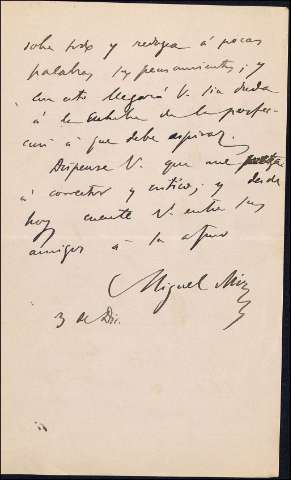 sobre todo y reduzca á pocas
palabras sus pensamientos; y
con esto llegará V. sin duda
á la cumbre de la perfec-
cion á que debe aspirar.
Dispense V. que me
á corrector y crítico; y desde
hoy cuente V. entre sus
amigos á su afmo
Miguel Mir
3 de Dic.